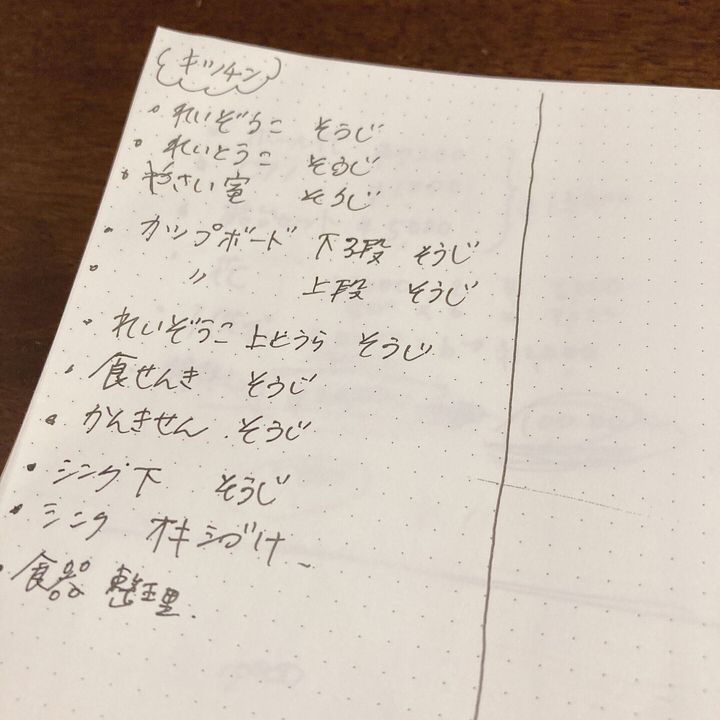 キッチン
・れいぞうこ そうじ
・れいとうこ そうじ
・やさい室 そうじ
・カップボード 下3段 そうじ
・ 〃 上段 そうじ
・れいぞうこ 上とうら そうじ
・食せんき そうじ
・かんきせん そうじ
・シンク下 そうじ
・シンク オキシづけ
・食器 整理